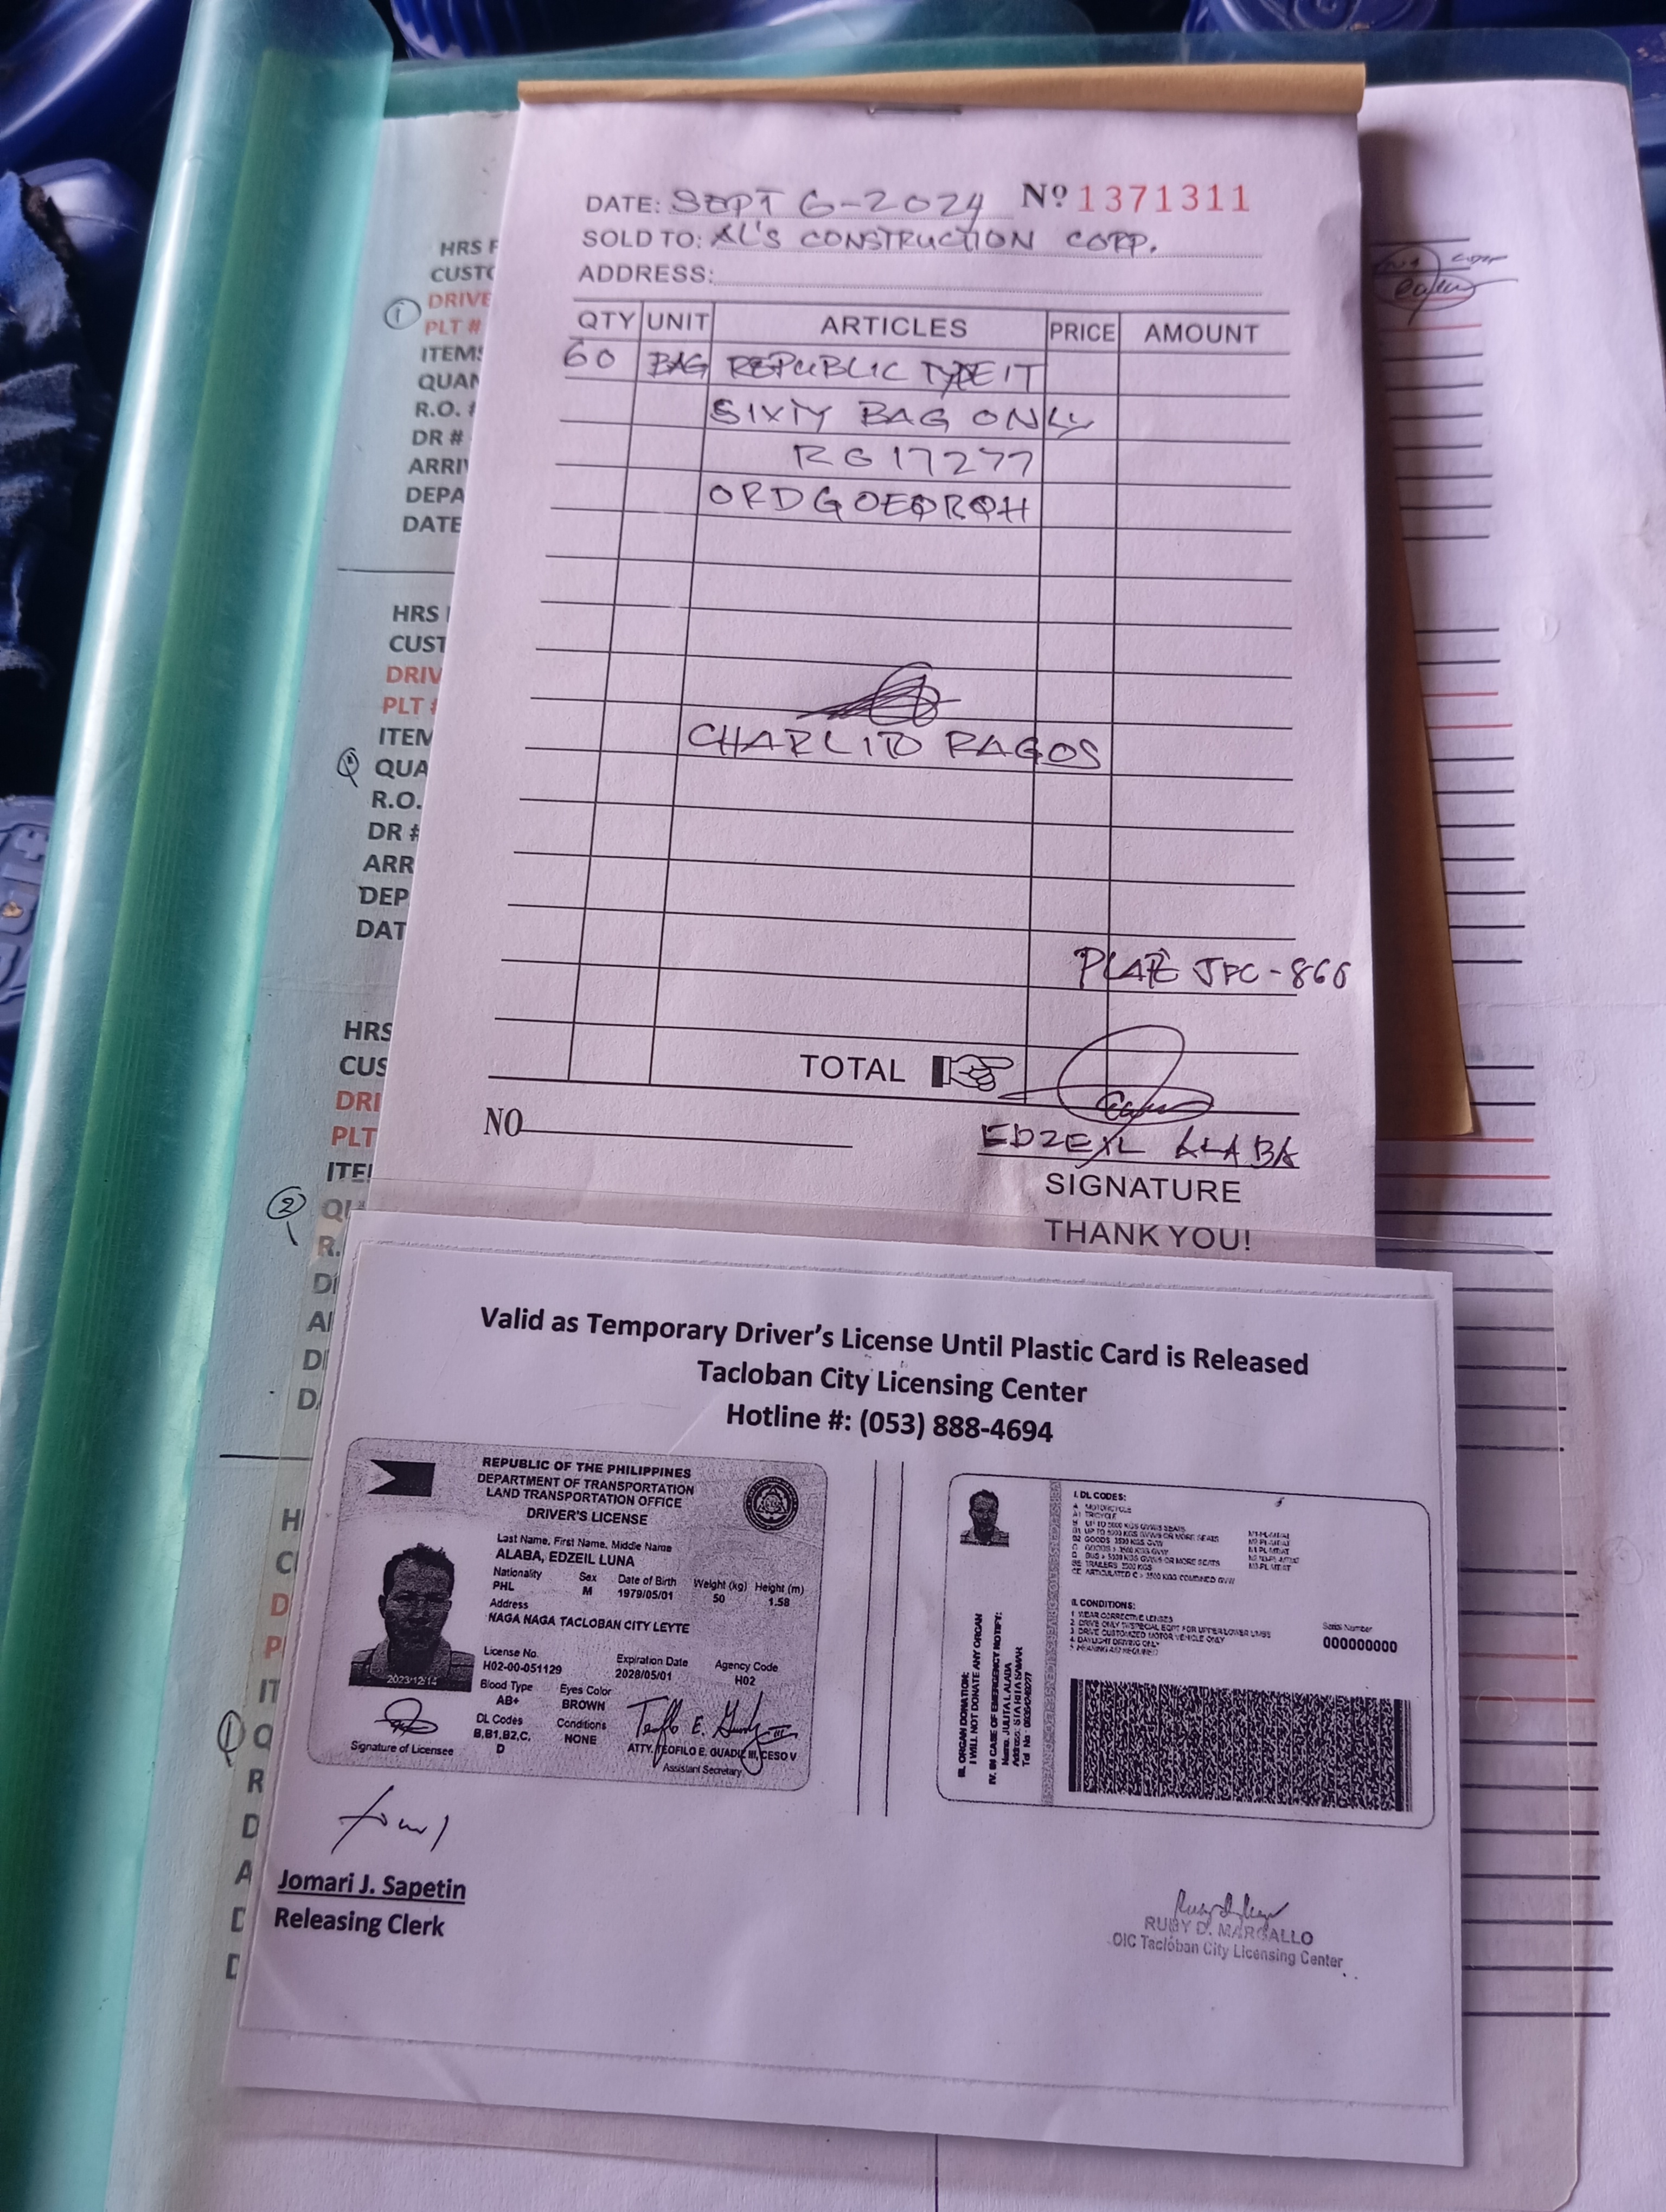 DATE: SEPT 6-2024 Nº 1371311
SOLD TO: AL'S CONSTRUCTION CORP.
ADDRESS:
QTY UNIT ARTICLES PRICE AMOUNT
60 BAG REPUBLIC TYPE 1T
SIXTY BAG ONLY
RG17277
ORDGOEQRQH
CHARLITO RAGOS
PLATE JPC-866
TOTAL
NO
EDZEIL ALABA
SIGNATURE
THANK YOU!
HRS
CUST
DRIVE
PLT #
ITEMS
QUAN
R.O. #
DR #
ARRIV
DEPA
DATE
HRS
CUST
DRIV
PLT #
ITEM
QUA
R.O.
DR #
ARR
DEP
DAT
HRS
CUS
DRI
PLT
ITE
Valid as Temporary Driver's License Until Plastic Card is Released
Tacloban City Licensing Center
Hotline #: (053) 888-4694
REPUBLIC OF THE PHILIPPINES
DEPARTMENT OF TRANSPORTATION
LAND TRANSPORTATION OFFICE
DRIVER'S LICENSE
Last Name, First Name, Middle Name
ALABA, EDZEIL LUNA
Nationality Sex Date of Birth Weight (kg) Height (m)
PHL M 1979/05/01 50 1.58
Address
NAGA NAGA TACLOBAN CITY LEYTE
License No. Expiration Date Agency Code
H02-00-051129 2028/05/01 H02
Blood Type Eyes Color
AB+ BROWN
DL Codes Conditions
B,B1,B2,C, NONE
D
2023/12/14
Signature of Licensee
ATTY. TEOFILO E. GUADIZ III, CESO V
Assistant Secretary
I. DL CODES:
A MOTORCYCLE
A1 TRICYCLE
II. CONDITIONS:
1 WEAR CORRECTIVE LENSES
2 DRIVE ONLY W/SPECIAL EQPT FOR UPPER/LOWER LIMBS
3 DRIVE CUSTOMIZED MOTOR VEHICLE ONLY
4 DAYLIGHT DRIVING ONLY
5 HEARING AID REQUIRED
Serial Number
000000000
III. ORGAN DONATION:
I WILL NOT DONATE ANY ORGAN
IV. IN CASE OF EMERGENCY NOTIFY:
Name: JULITA L ALABA
Jomari J. Sapetin
Releasing Clerk
RUBY D. MARGALLO
OIC Tacloban City Licensing Center